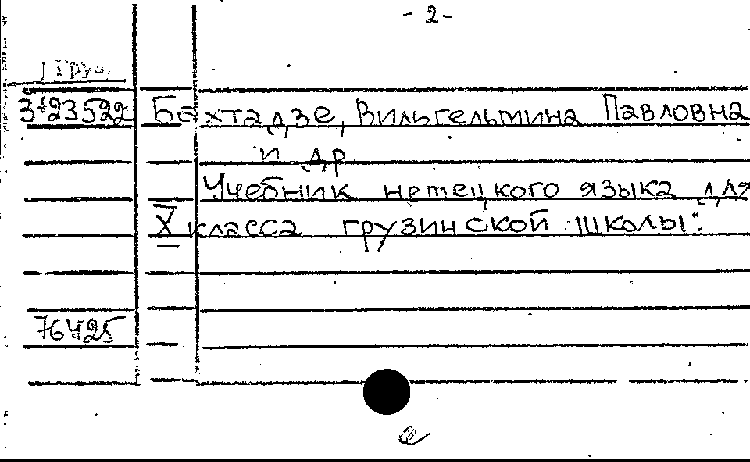 - 2 -
Груз.
3-23522 Бахтадзе, Вильгельмина Павловна
и др.
Учебник немецкого языка для
X класса грузинской школы.
76425